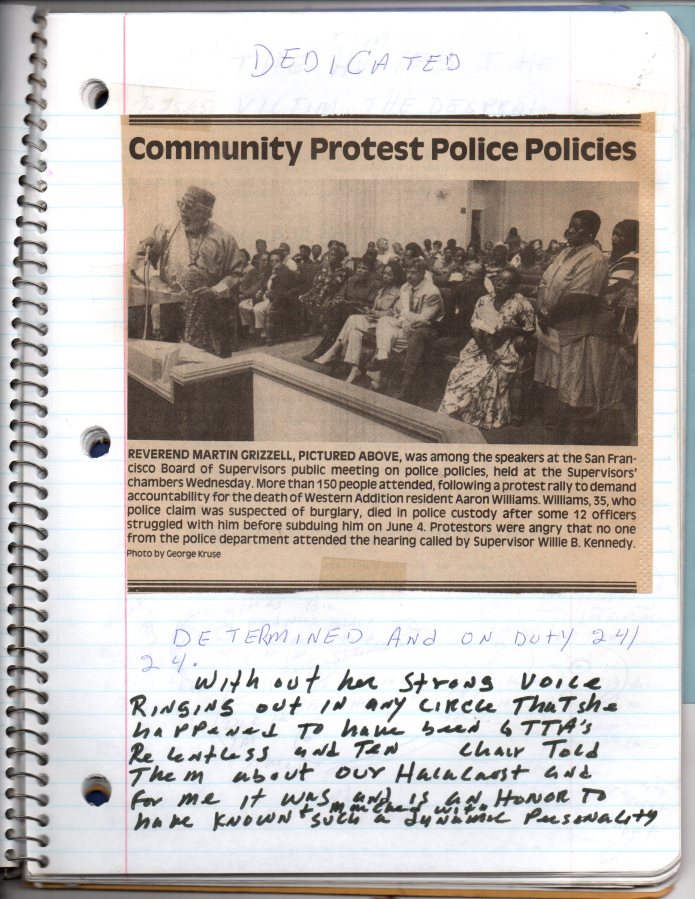 DEDICATED
Community Protest Police Policies
REVEREND MARTIN GRIZZELL, PICTURED ABOVE, was among the speakers at the San Fran-
cisco Board of Supervisors public meeting on police policies, held at the Supervisors'
chambers Wednesday. More than 150 people attended, following a protest rally to demand
accountability for the death of Western Addition resident Aaron Williams. Williams, 35, who
police claim was suspected of burglary, died in police custody after some 12 officers
struggled with him before subduing him on June 4. Protestors were angry that no one
from the police department attended the hearing called by Supervisor Willie B. Kennedy.
Photo by George Kruse
DETERMINED AND ON DUTY 24/
24.
With out her STRONG VOICE
RINGING OUT IN ANY CIRCLE THAT she
happened To have been GTTA's
Relentless and Ten Chair Told
Them about our Halacaost and
for me it was and is an HONOR TO
have KNOWN + Marched with such a dynamic Personality